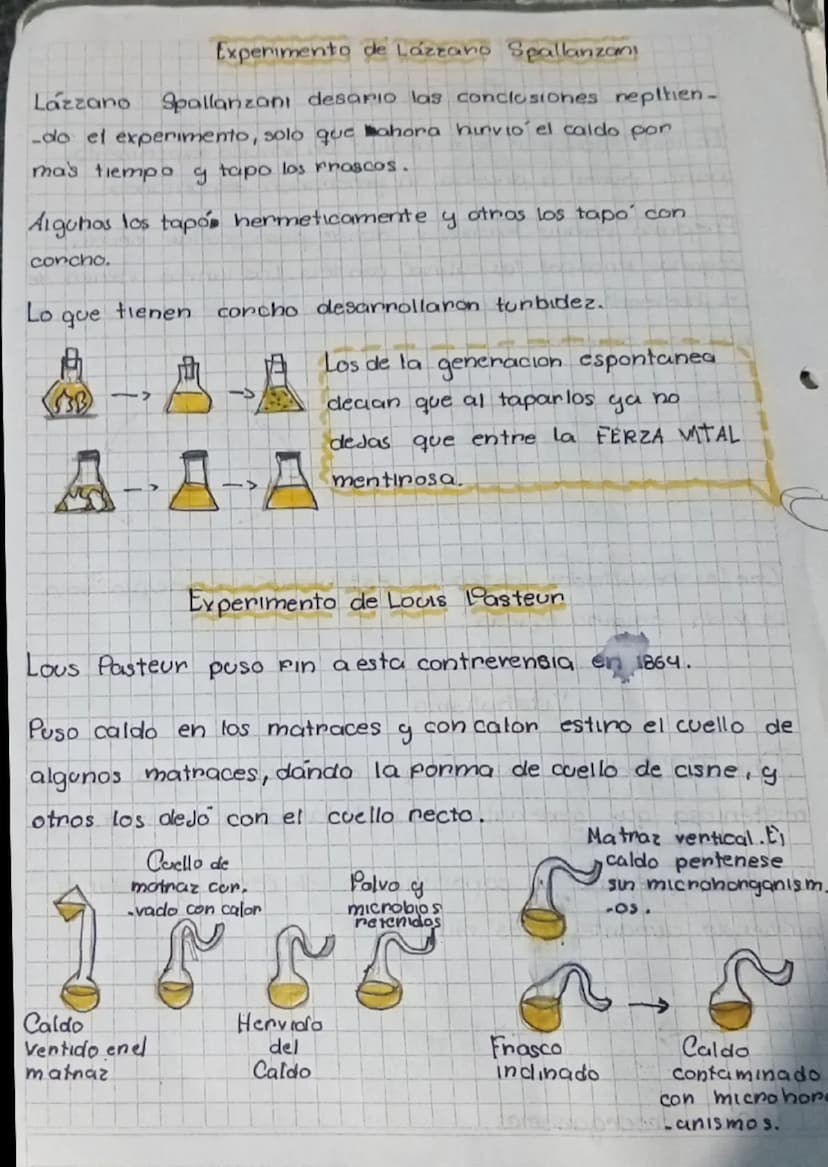 Experimento de Lázzano Spallanzani
Lázzano Spallanzani desario las conclusiones nepitien-
-do el experimento, solo que ahora hinvio el caldo por
más tiempo y tapo los frascos.
Algunos los tapó hermeticamente y otros los tapó con
concho.
Lo que tienen concho desannollaron turbidez.
Los de la generacion espontanea
decian que al taparlos ya no
dejas que entre la FERZA VITAL
mentirosa.
Experimento de Louis Pasteur
Lous Pasteur puso fin a esta contreversia en 1864.
Puso caldo en los matraces y con calor estiro el cuello de
algunos matraces, dándo la forma de cuello de cisne, y
otros los dejó con el cuello recto.
Matraz vertical. El
caldo pertenese
sin microhorganism
-os.
Cuello de
matraz cur,
-vado con calor
Polvo y
microbios
retenidos
Caldo
vertido en el
matraz
Hervido
del
Caldo
Frasco
inclinado
Caldo
contaminado
con microhor
-anismos.